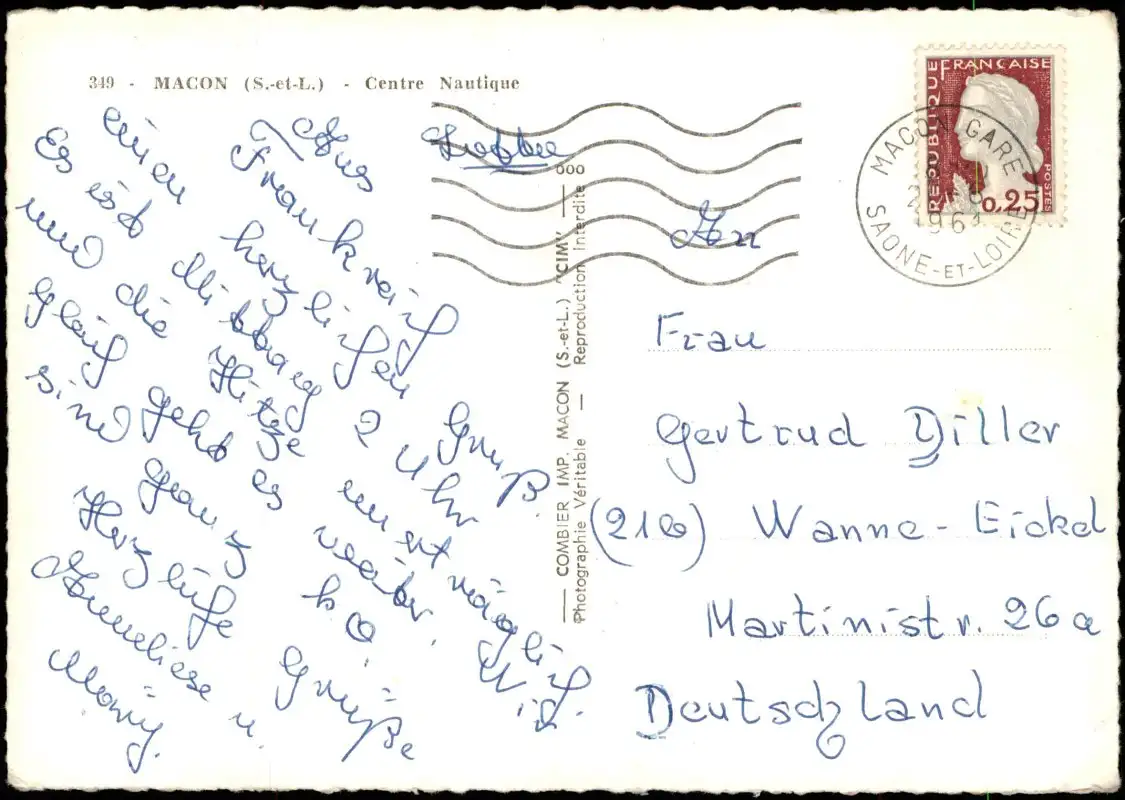 349 - MACON (S.-et-L.) - Centre Nautique
Aus
Frankreich
einen herzlichen Gruß.
Es ist Mittag 2 Uhr
und die Hitze unerträglich.
Gleich geht es weiter. Wir
sind ganz ko.
Herzliche Grüße
Anneliese u.
— COMBIER IMP. MACON (S.-et-L.) "CIM" —
Photographie Véritable — Reproduction Interdite
REPUBLIQUE FRANÇAISE
POSTES
0,25
MACON GARE
SAONE-ET-LOIRE
An
Frau
Gertrud Diller
(21b) Wanne-Eickel
Martinistr. 26a
Deutschland